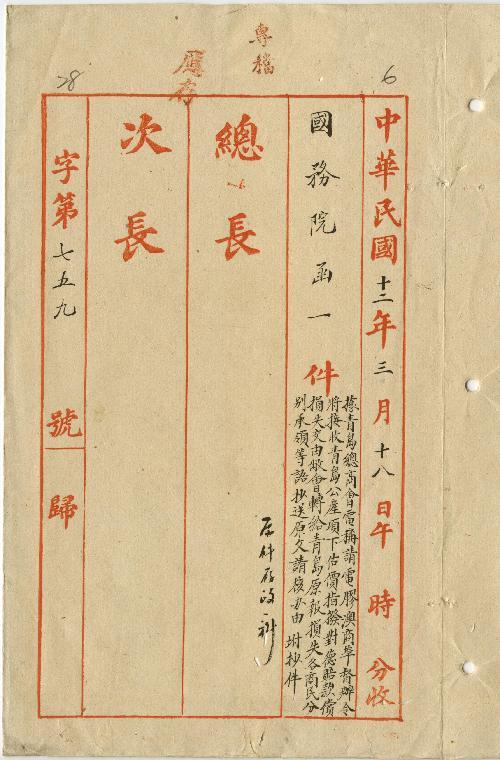 專檔
應存
6
28
中華民國十二年三月十八日午 時 分收
國務院函一件
據青島總商會電稱請電膠澳商埠督辦令
將接收青島公產項下估價指撥對德賠款償
損失交由敝會轉給青島原報損失各商民分
別承領等語抄送原文請核辦由 附抄件
原件存政一科
總長
次長
字第七五九號歸